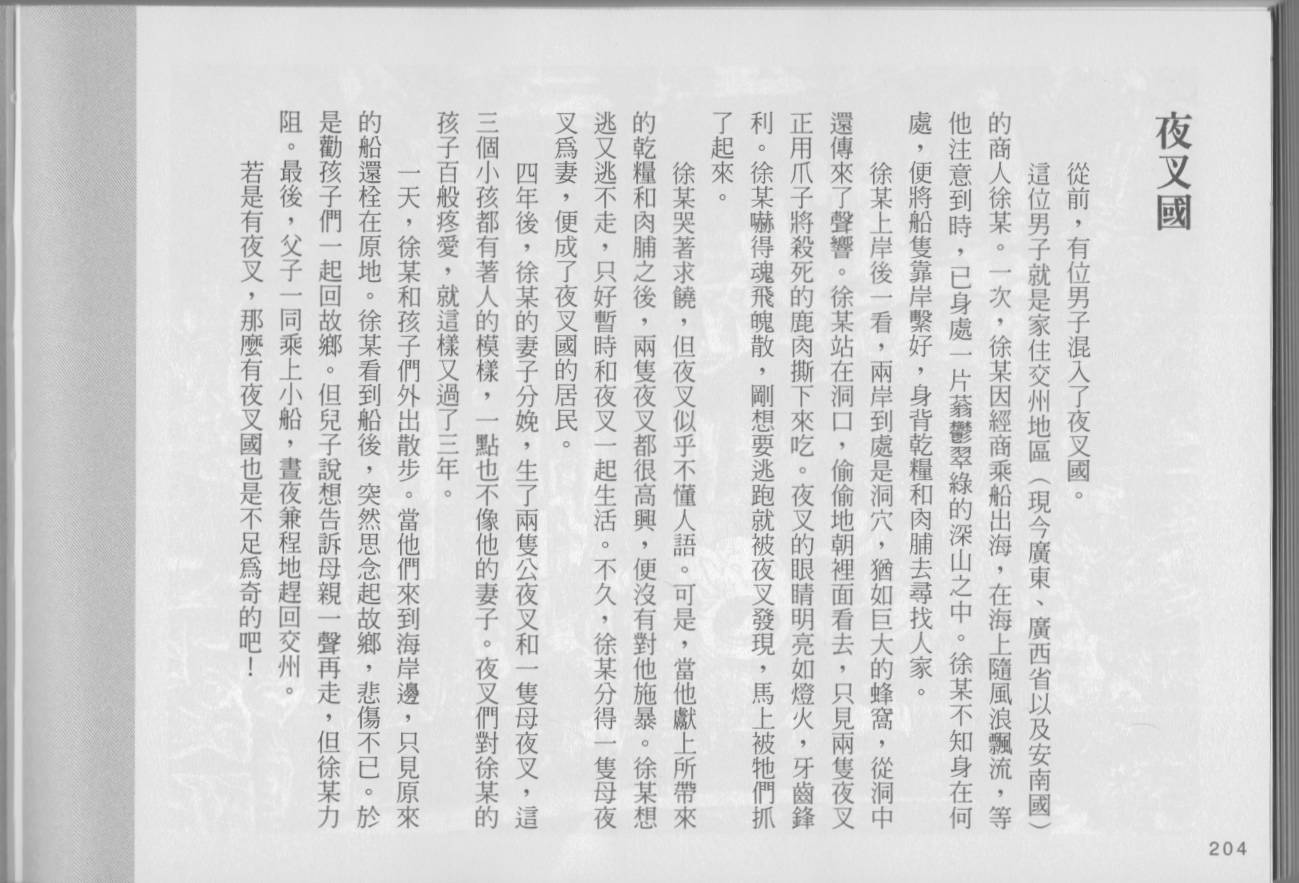 夜叉國
從前，有位男子混入了夜叉國。
這位男子就是家住交州地區（現今廣東、廣西省以及安南國）
的商人徐某。一次，徐某因經商乘船出海，在海上隨風浪飄流，等
他注意到時，已身處一片蓊鬱翠綠的深山之中。徐某不知身在何
處，便將船隻靠岸繫好，身背乾糧和肉脯去尋找人家。
徐某上岸後一看，兩岸到處是洞穴，猶如巨大的蜂窩，從洞中
還傳來了聲響。徐某站在洞口，偷偷地朝裡面看去，只見兩隻夜叉
正用爪子將殺死的鹿肉撕下來吃。夜叉的眼睛明亮如燈火，牙齒鋒
利。徐某嚇得魂飛魄散，剛想要逃跑就被夜叉發現，馬上被牠們抓
了起來。
徐某哭著求饒，但夜叉似乎不懂人語。可是，當他獻上所帶來
的乾糧和肉脯之後，兩隻夜叉都很高興，便沒有對他施暴。徐某想
逃又逃不走，只好暫時和夜叉一起生活。不久，徐某分得一隻母夜
叉爲妻，便成了夜叉國的居民。
四年後，徐某的妻子分娩，生了兩隻公夜叉和一隻母夜叉，這
三個小孩都有著人的模樣，一點也不像他的妻子。夜叉們對徐某的
孩子百般疼愛，就這樣又過了三年。
一天，徐某和孩子們外出散步。當他們來到海岸邊，只見原來
的船還栓在原地。徐某看到船後，突然思念起故鄉，悲傷不已。於
是勸孩子們一起回故鄉。但兒子說想告訴母親一聲再走，但徐某力
阻。最後，父子一同乘上小船，晝夜兼程地趕回交州。
若是有夜叉，那麼有夜叉國也是不足爲奇的吧！
204